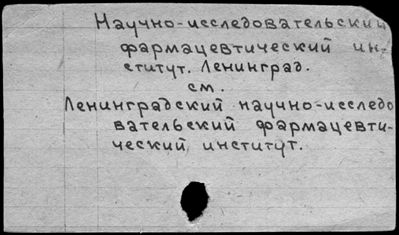 Научно-исследовательский
фармацевтический ин-
ститут. Ленинград.
см.
Ленинградский научно-исследо
вательский фармацевти-
ческий институт.